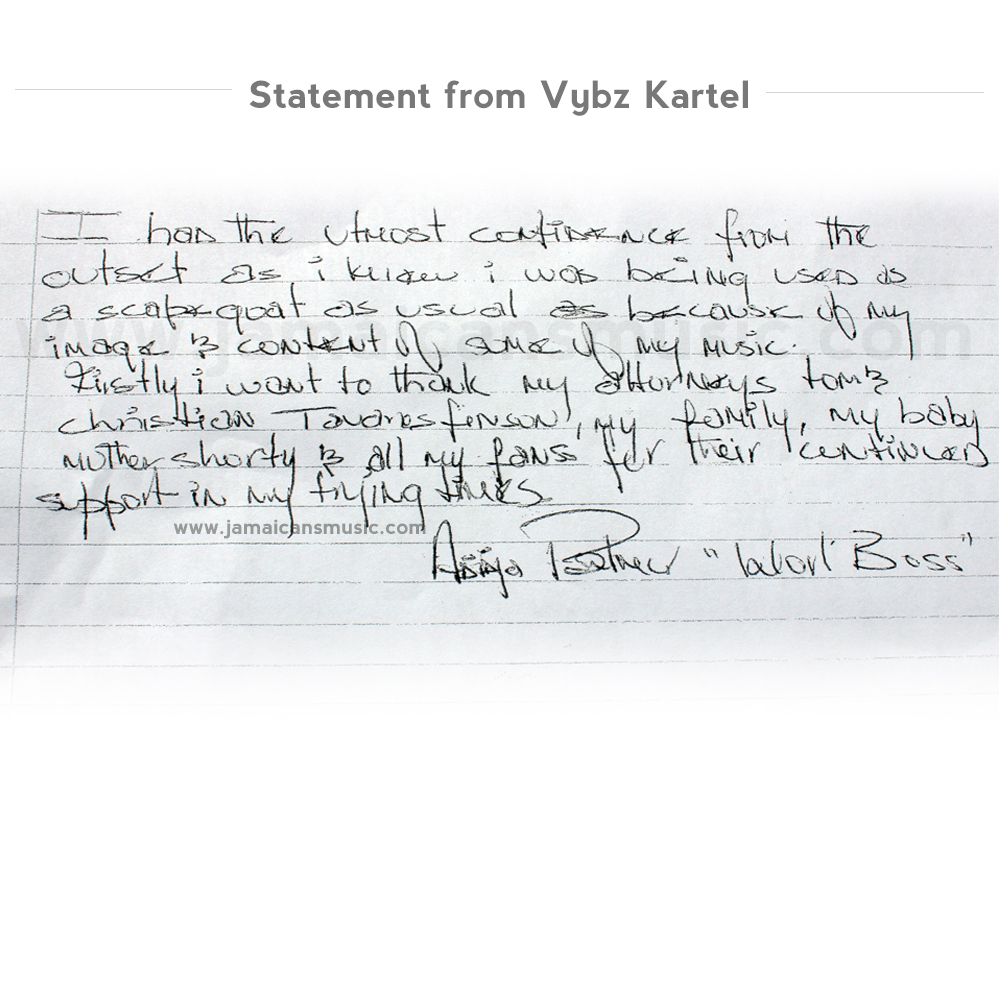 Statement from Vybz Kartel
I had the utmost confidence from the
outset as i knew i was being used as
a scapegoat as usual as because of my
image & content of some of my music.
Firstly i want to thank my attorneys tom &
christian Tavares finson, my family, my baby
mother shorty & all my fans for their continued
support in my trying times
www.jamaicansmusic.com
www.jamaicansmusic.com
Adija Palmer "Worl' Boss"